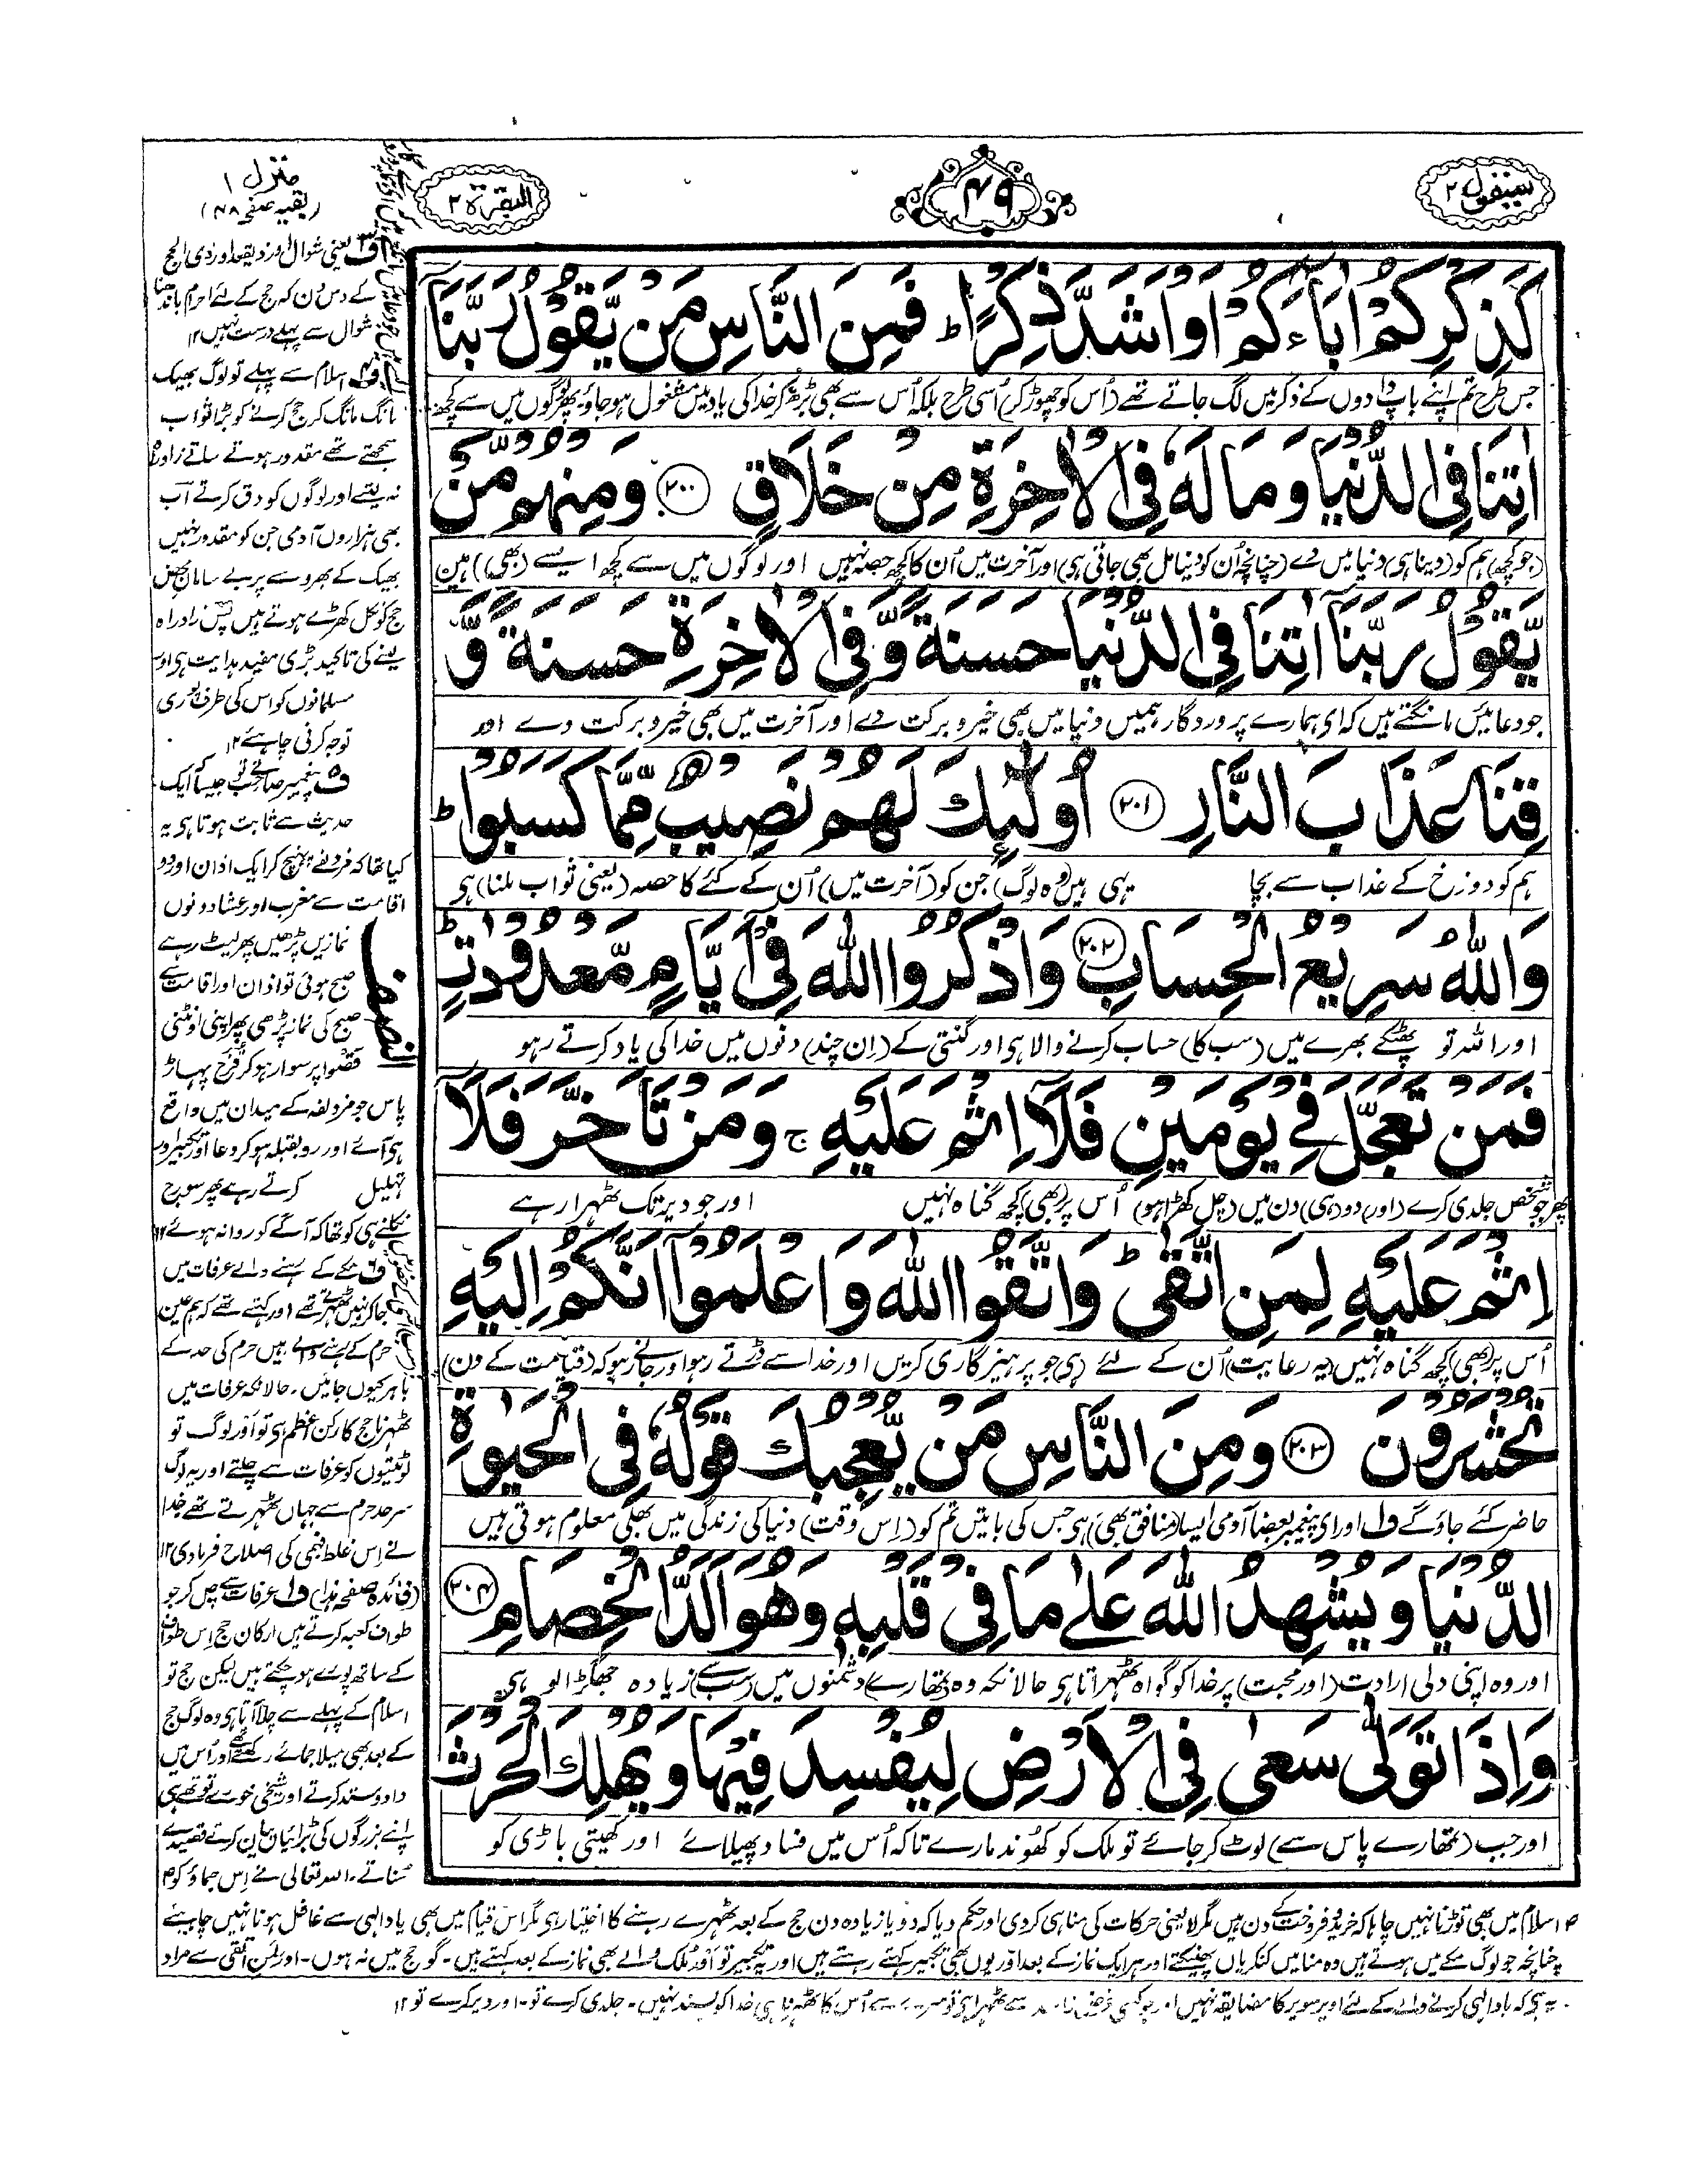 سیقول ٢
٤٩
البقرة ٢
منزل ١
(بقیہ صفحہ ٤٨)
كَذِكْرِكُمْ اٰبَآءَكُمْ اَوْ اَشَدَّ ذِكْرًا ؕ فَمِنَ النَّاسِ مَنْ يَّقُوْلُ رَبَّنَآ
جس طرح تم اپنے باپ دادوں کے ذکر میں لگ جاتے تھے (اُس کو چھوڑ کر) اُسی طرح بلکہ اُس سے بھی بڑھ کر خدا کی یاد میں مشغول ہو جاؤ پھر لوگوں میں سے کچھ
اٰتِنَا فِي الدُّنْيَا وَمَا لَهٗ فِي الْاٰخِرَةِ مِنْ خَلَاقٍ ٢٠٠ وَمِنْهُمْ مَّنْ
(جو کچھ) ہم کو (دینا ہی) دنیا میں دے (چنانچہ اُن کو دنیا مل بھی جاتی ہی) اور آخرت میں اُن کا کچھ حصہ نہیں اور لوگوں میں سے کچھ ایسے (بھی) ہین
يَّقُوْلُ رَبَّنَآ اٰتِنَا فِي الدُّنْيَا حَسَنَةً وَّفِي الْاٰخِرَةِ حَسَنَةً وَّ
جو دعائیں مانگتے ہیں کہ ای ہمارے پروردگار ہمیں دنیا میں بھی خیر و برکت دے اور آخرت میں بھی خیر و برکت دے اور
قِنَا عَذَابَ النَّارِ ٢٠١ اُولٰٓئِكَ لَهُمْ نَصِيْبٌ مِّمَّا كَسَبُوْا ؕ
ہم کو دوزخ کے عذاب سے بچا یہی ہیں (وہ لوگ) جن کو (آخرت میں) اُن کے کئے کا حصہ (یعنی ثواب ملنا) ہی
وَاللّٰهُ سَرِيْعُ الْحِسَابِ ٢٠٢ وَاذْكُرُوا اللّٰهَ فِيْٓ اَيَّامٍ مَّعْدُوْدٰتٍ ؕ
اور اللہ تو چٹکے بھرے میں (سب کا) حساب کرنے والا ہی اور گنتی کے (اِن چند) دنوں میں خدا کی یاد کرتے رہو
فَمَنْ تَعَجَّلَ فِيْ يَوْمَيْنِ فَلَآ اِثْمَ عَلَيْهِ ۚ وَمَنْ تَاَخَّرَ فَلَآ
پھر جو شخص جلدی کرے (اور) دو (ہی) دن میں (چل کھڑا ہو) اُس پر (بھی) کچھ گناہ نہیں اور جو دیر تک ٹھہرا رہے
اِثْمَ عَلَيْهِ لِمَنِ اتَّقٰى ؕ وَاتَّقُوا اللّٰهَ وَاعْلَمُوْٓا اَنَّكُمْ اِلَيْهِ
اُس پر (بھی) کچھ گناہ نہیں (یہ رعایت) اُن کے لئے (ہی) جو پرہیزگاری کریں اور خدا سے ڈرتے رہو اور جانے رہو کہ (قیامت کے دن)
تُحْشَرُوْنَ ٢٠٣ وَمِنَ النَّاسِ مَنْ يُّعْجِبُكَ قَوْلُهٗ فِي الْحَيٰوةِ
حاضر کئے جاؤ گے ف۱ اور ای پیغمبر بعضا آدمی ایسا (منافق بھی) ہی جس کی باتیں تم کو (اِس وقت) دنیا کی زندگی میں بھلی معلوم ہوتی ہیں
الدُّنْيَا وَيُشْهِدُ اللّٰهَ عَلٰى مَا فِيْ قَلْبِهٖ وَهُوَ اَلَدُّ الْخِصَامِ ٢٠٤
اور وہ اپنی دلی ارادت (اور محبت) پر خدا کو گواہ ٹھہراتا ہی حالانکہ وہ (تمھارے) دشمنوں میں (سب سے) زیادہ جھگڑالو ہی
وَاِذَا تَوَلّٰى سَعٰى فِي الْاَرْضِ لِيُفْسِدَ فِيْهَا وَيُهْلِكَ الْحَرْثَ
اور جب (تمھارے پاس سے) لوٹ کر جائے تو ملک کو کھوند مارے تاکہ اُس میں فساد پھیلائے اور کھیتی باڑی کو
ف۳ یعنی شوال اور ذیقعد اور ذی الحج
کے دس دن کہ حج کے لئے احرام باندھنا
شوال سے پہلے درست نہیں ١٢
ف۴ اسلام سے پہلے تو لوگ بھیک
مانگ مانگ کر حج کرنے کو بڑا ثواب
سمجھتے تھے مقدور ہوتے ساتے زاد راہ
نہ لیتے اور لوگوں کو دق کرتے اب
بھی ہزاروں آدمی جن کو مقدور نہیں
بھیک کے بھروسے پر بے سامان محض
حج کو نکل کھڑے ہوتے ہیں پس زاد راہ
لینے کی تاکید بڑی مفید ہدایت ہی اور
مسلمانوں کو اس کی طرف پوری
توجہ کرنی چاہئے ١٢
ف۵ پیغمبر صاحب نے جیسا کہ ایک
حدیث سے ثابت ہوتا ہی یہ
کیا تھا کہ مزدلفے پہنچ کر ایک اذان اور دو
اقامت سے مغرب اور عشا دونوں
نمازیں پڑھیں پھر لیٹ رہے
صبح ہوئی تو اذان اور اقامت سے
صبح کی نماز پڑھی پھر اپنی اونٹنی
قصوا پر سوار ہو کر قزح پہاڑ
پاس جو مزدلفہ کے میدان میں واقع
ہی آئے اور رو بقبلہ ہو کر دعا اور تکبیر اور
تہلیل کرتے رہے پھر سورج
نکلنے ہی کو تھا کہ آگے کو روانہ ہوئے ١٢
ف۶ مکے کے رہنے والے عرفات میں
جا کر نہیں ٹھہرتے تھے اور کہتے تھے کہ ہم عین
حرم کے رہنے والے ہیں حرم کی حد کے
باہر کیوں جائیں۔ حالانکہ عرفات میں
ٹھہرنا حج کا رکن اعظم ہی تو اور لوگ تو
لوٹتیوں کو عرفات سے چلتے اور یہ لوگ
سرحد حرم سے جہاں ٹھہرتے تھے خدا
نے اِس غلط فہمی کی اصلاح فرمادی ١٢
(فائدہ صفحہ ہذا) ف۱ عرفات سے چل کر جو
طواف کعبہ کرتے ہیں ارکان حج اِس طواف
کے ساتھ پورے ہو چکتے ہیں لیکن حج تو
اسلام کے پہلے سے چلا آتا ہی وہ لوگ حج
کے بعد بھی میلا جمائے رکھتے اور اُس میں
داد و ستد کرتے اور شیخی خورے تو تھے ہی
اپنے بزرگوں کی بڑائیاں بیان کرتے قصیدے
سناتے۔ اللہ تعالی نے اِس جماؤ کو
النصف
اسلام میں بھی توڑنا نہیں چاہا کہ خرید و فروخت کے دن ہیں مگر لایعنی حرکات کی مناہی کردی اور حکم دیا کہ دو یا زیادہ دن حج کے بعد ٹھہرے رہنے کا اختیار ہی مگر اس قیام میں بھی یاد الٰہی سے غافل ہونا نہیں چاہیئے
چنانچہ جو لوگ مکے میں ہوتے ہیں وہ منا میں کنکریاں پھینکتے اور ہر ایک نماز کے بعد اور یوں بھی تکبیر کہتے رہتے ہیں اور یہ تکبیر تو اور ملک والے بھی نماز کے بعد کہتے ہیں۔ گو حج میں نہ ہوں۔ اور لمن اتقی سے مراد
یہ ہی کہ یاد الٰہی کرنے والے کے لئے اویر سویر کا مضایقہ نہیں اُس کا ٹھہرنا ہی خدا کو پسند نہیں۔ جلدی کرے تو۔ اور دیر کرے تو ١٢